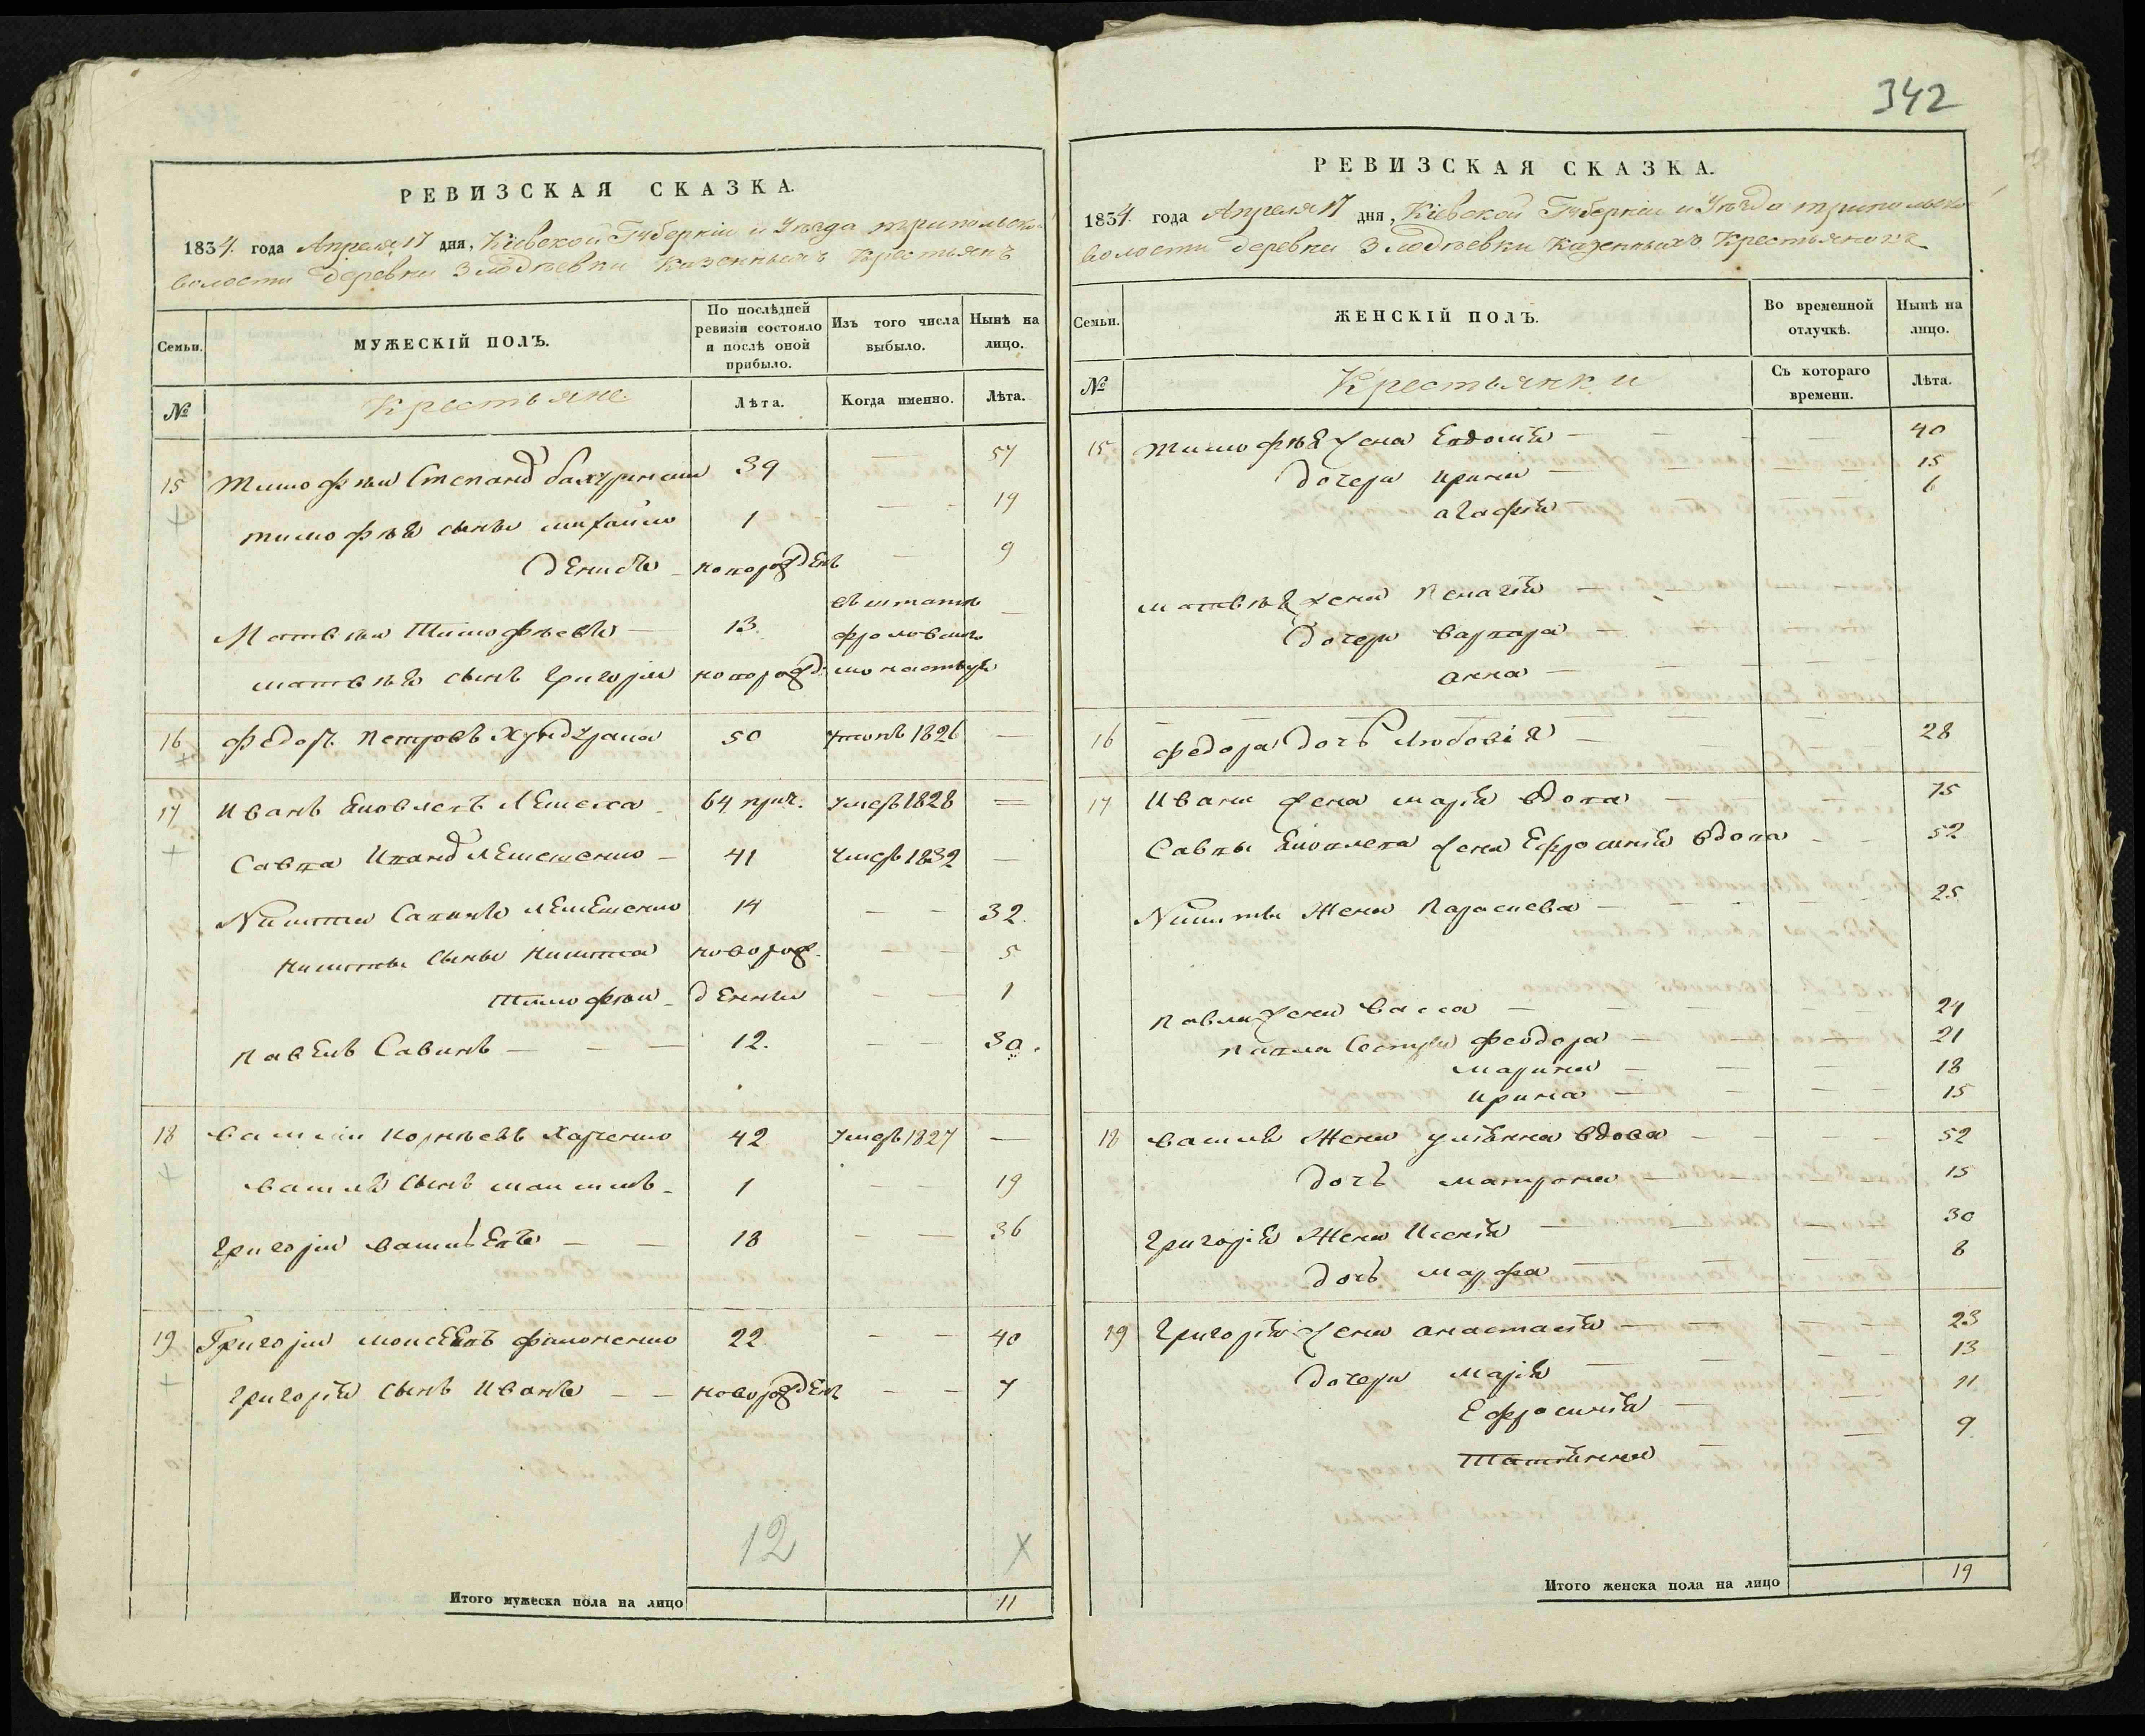 342
РЕВИЗСКАЯ СКАЗКА.
1834 года Апреля 17 дня, Кіевской Губерніи и Уѣзда трипольско
волости деревни Злодѣевки Казенныхъ Крестьянъ
Семьи.
МУЖЕСКІЙ ПОЛЪ.
По послѣдней ревизіи состояло и послѣ оной прибыло.
Изъ того числа выбыло.
Нынѣ на лицо.
№
Крестьяне
Лѣта.
Когда именно.
Лѣта.
15 Тимофѣй Степанов 39 — 57
тимофѣя сыны михайло 1 — 19
Денисъ новорожден — 9
Матвѣй Тимофѣевъ — 13
матвѣя сынъ григорій новорожд.
16 федоръ Петровъ 50 1826 —
17 Иванъ Яковлевъ Лемеха 64 Умеръ 1828 =
Савва Иванов Лемешенко — 41 Умеръ 1832 —
Никита Савинъ Лемешенко 14 — — 32
Никиты сыны Никита новорож. — — 5
Тимофѣй денны — — 1
Павелъ Савинъ — — — 12. — — 30.
18 Василій Корнѣевъ Харченко 42 Умеръ 1827 —
Василія сынъ 1 — — 19
Григорій Васильевъ — — 18 — — 36
19 Григорій моисеевъ филоненко 22 — — 40
григорія сынъ Иванъ — — новорожден — — 7
12
X
Итого мужеска пола на лицо 11
РЕВИЗСКАЯ СКАЗКА.
1834 года Апреля 17 дня, Кіевской Губерніи и Уѣзда трипольско
волости деревни Злодѣевки Казенныхъ Крестьянокъ
Семьи.
ЖЕНСКІЙ ПОЛЪ.
Во временной отлучкѣ.
Нынѣ на лицо.
№
Крестьянки
Съ котораго времени.
Лѣта.
15 Тимофѣя жена Евдокія — — — 40
дочери Ирина — — — 15
агафія 6
матвѣя жена Пелагія —
дочери варвара —
анна —
16 федора дочь — 28
17 Ивана жена марія вдова — — 75
Саввы жена Ефросинія вдова — — 52
Никиты Жена Параскева — — — 25
Павла жена васса — — — 24
Павла сестры феодора — — — 21
марина — — — 18
ирина — — — 15
18 василія Жена уліянна вдова — — — 52
дочь матрона — — — 15
Григорія Жена Ксенія — — — 30
дочь марфа — — — 8
19 григорія жена анастасія — — — 23
дочери марія — — — 13
Ефросинія — — 11
Татіянна — — 9
Итого женска пола на лицо 19